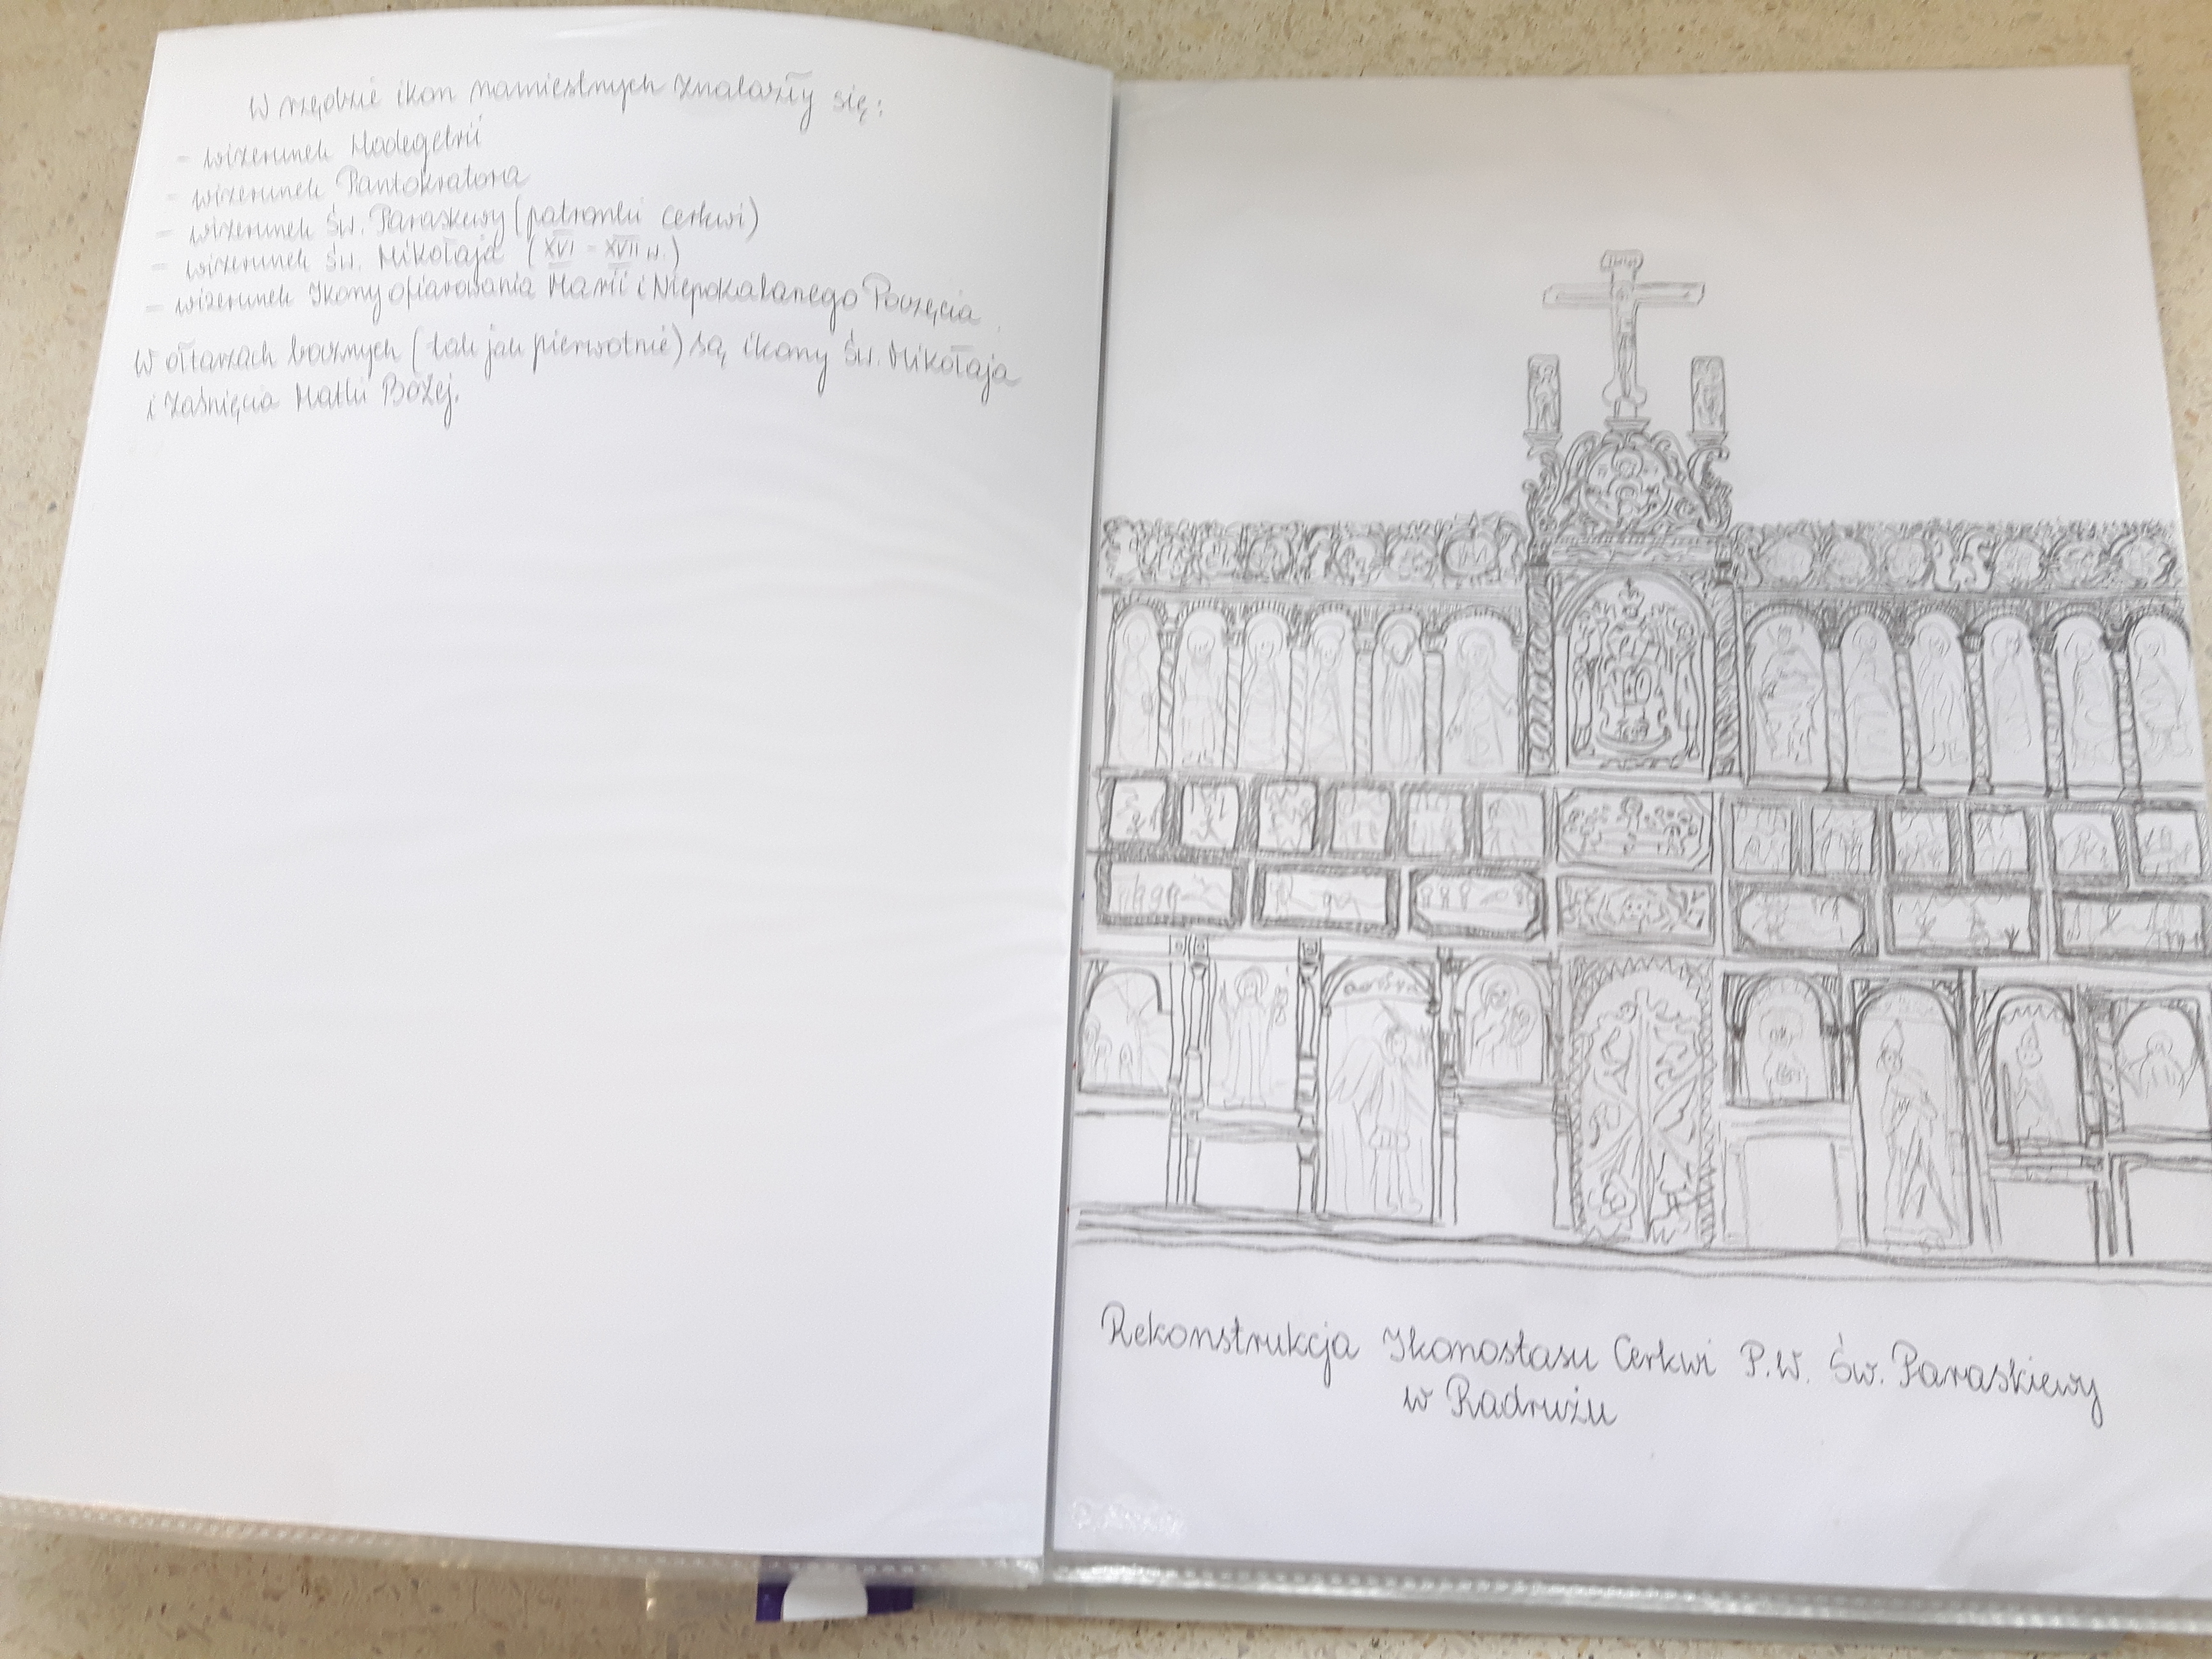 W rzędzie ikon namiestnych znalazły się:
- wizerunek Hodegetrii
- wizerunek Pantokratora
- wizerunek Św. Paraskewy (patronki cerkwi)
- wizerunek Św. Mikołaja (XVI - XVII w.)
- wizerunek Ikony ofiarowania Marii i Niepokalanego Poczęcia.
W ołtarzach bocznych (tak jak pierwotnie) są ikony Św. Mikołaja
i Zaśnięcia Matki Bożej.
Rekonstrukcja Ikonostasu Cerkwi P.W. Św. Paraskiewy
w Radrużu